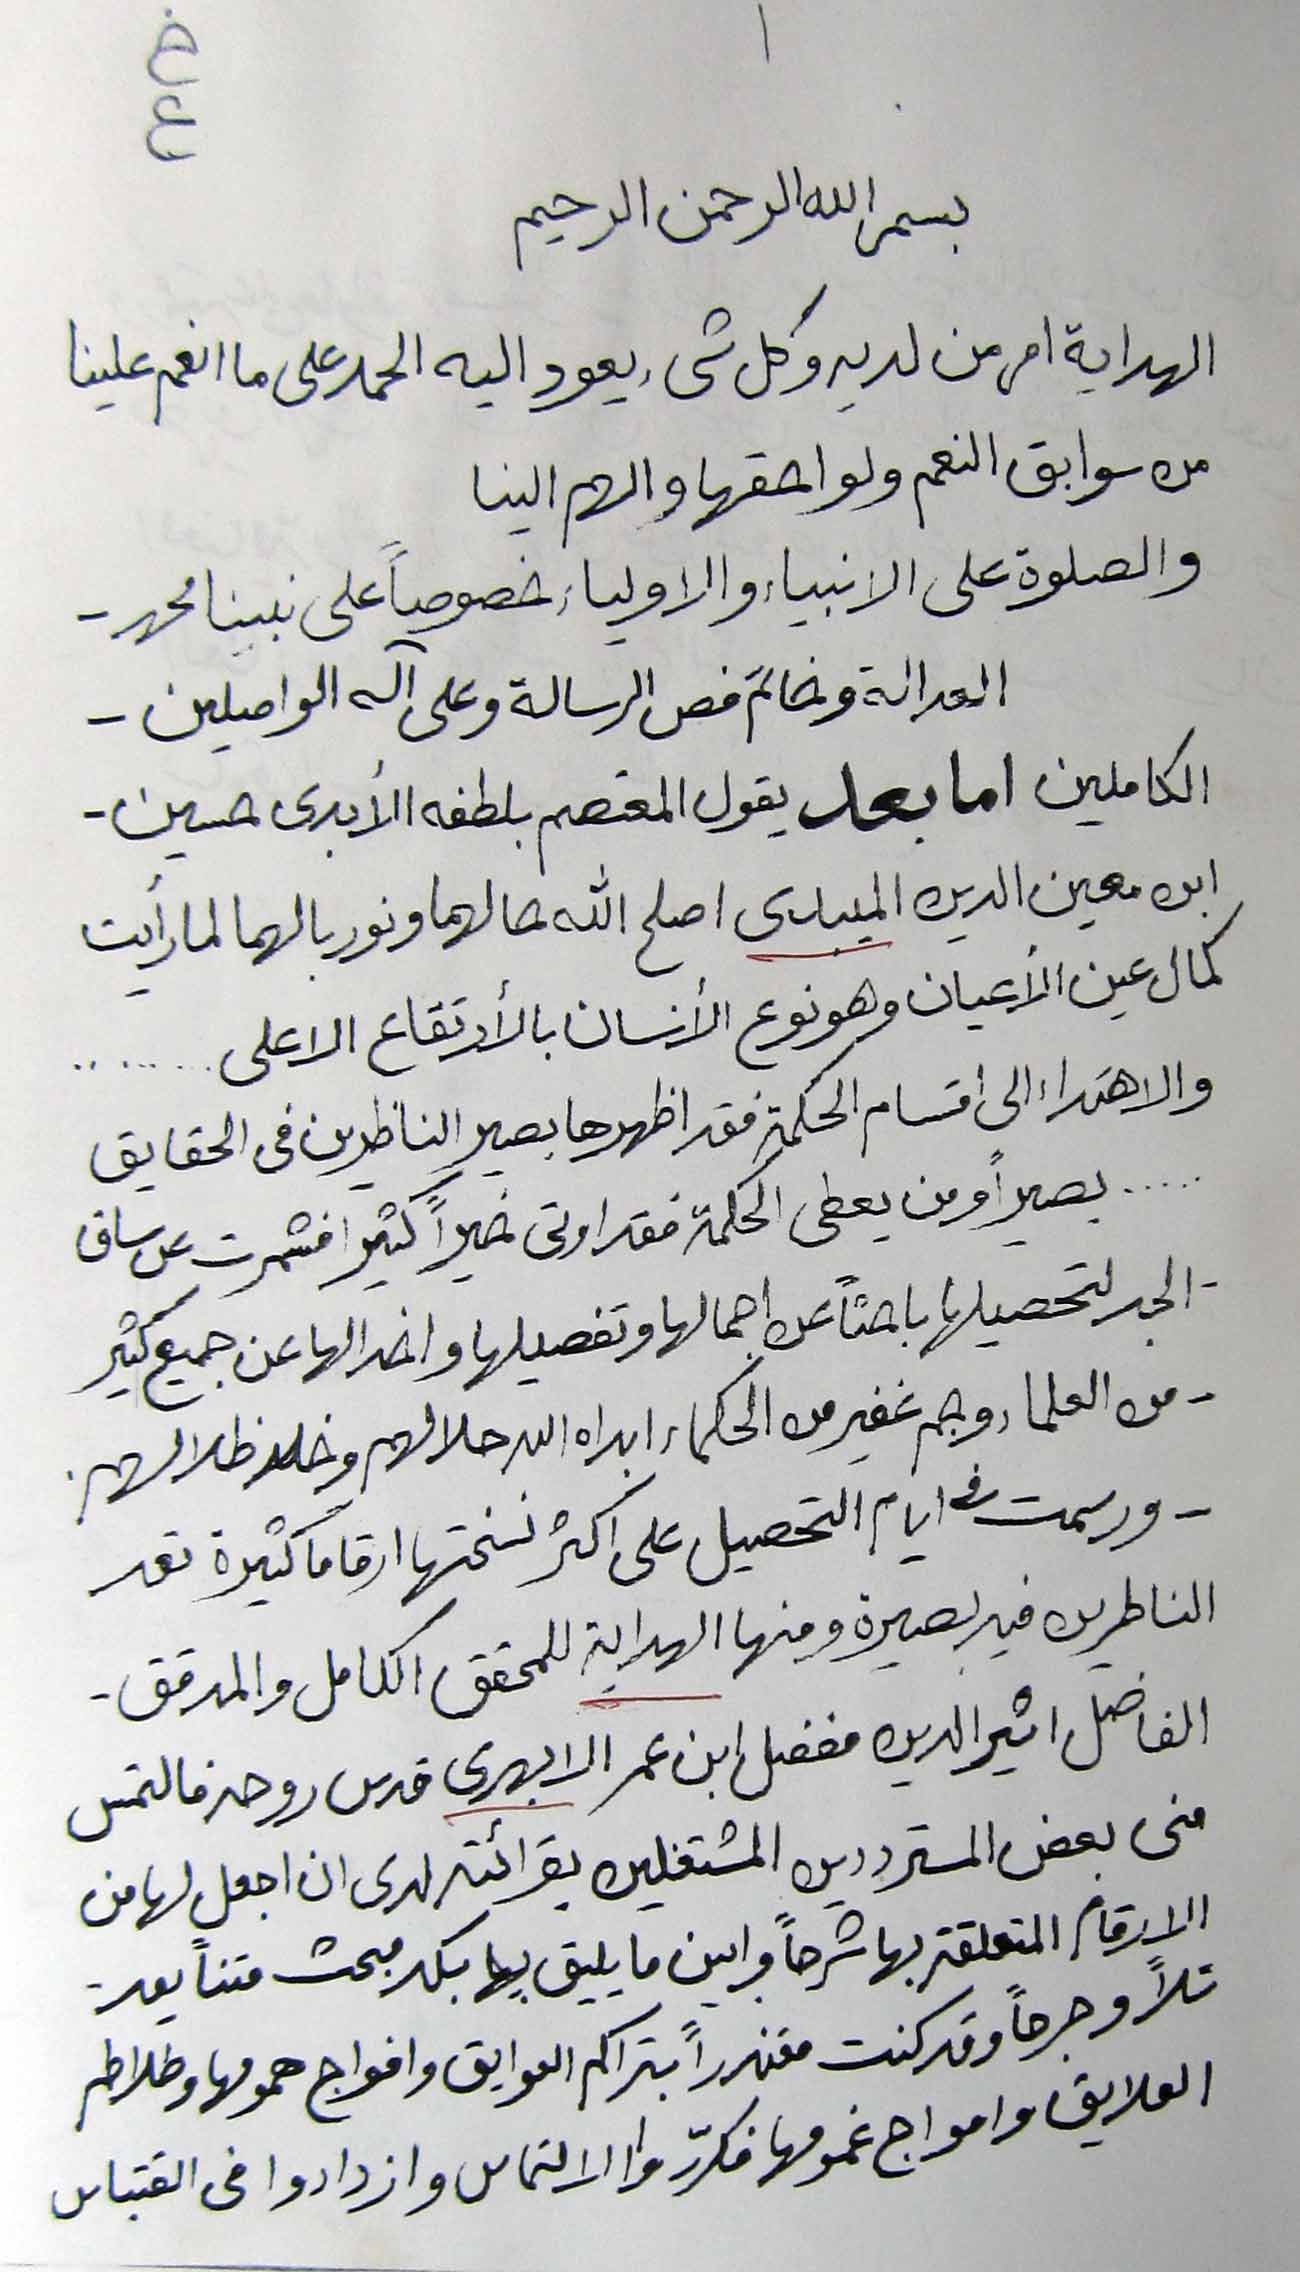 ١
خ
ع
بسم الله الرحمن الرحيم
الهداية امر من لديه وكل شىء يعود اليه الحمد على ما انعم علينا
من سوابق النعم ولواحقها والهم الينا
والصلوة على الانبياء والاولياء خصوصاً على نبينا محمد -
العدالة وخاتم فص الرسالة وعلى آله الواصلين -
الكاملين اما بعد يقول المعتصم بلطفه الأبدى حسين -
ابن معين الدين الميبدى اصلح الله حالهما ونور بالهما لما رأيت
كمال عين الأعيان وهو نوع الأنسان بالأرتقاع الاعلى ........
والاهتداء الى اقسام الحكمة فقد اظهرها بصير الناظرين فى الحقايق
..... بصيراً ومن يعطى الحكمة فقد اوتى خيراً كثيرا فشمرت عن ساق
- الجد لتحصيلها باحثاً عن اجمالها وتفصيلها واخدالها عن جميع كثير
- من العلماء وجم غفير من الحكماء ابداه الله جلالهم وخلد ظلالهم
- ورسمت فى ايام التحصيل على اكثر نسختها ارقاماً كثيرة تعد
الناظرين فيه بصيرة ومنها الهداية للمحقق الكامل والمدقق -
الفاضل اثير الدين مفضل ابن عمر الابهرى قدس روحه فالتمس
منى بعض المسترددين المشتغلين بقرائته لدى ان اجعل لها من
الارقام المتعلقة بها شرحاً وابين ما يليق بها بكل مبحث متناً يعد -
تلاً وجرحاً وقد كنت معتذراً بتراكم العوايق وافواج همومها وطلاطم
العلايق وامواج غمومها فكرّروا الالتماس وازدادوا فى القتباس